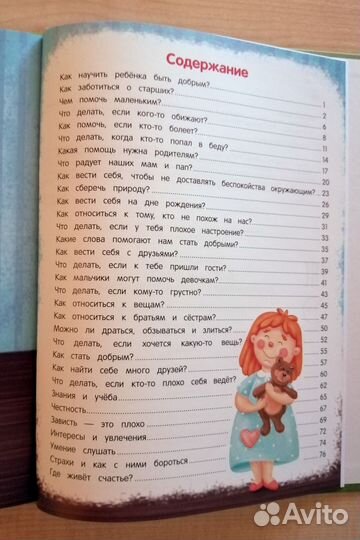 Содержание
Как научить ребёнка быть добрым? 1
Как заботиться о старших? 2
Чем помочь маленьким? 6
Что делать, если кого-то обижают? 8
Как помочь, если кто-то болеет? 11
Что делать, когда кто-то попал в беду? 14
Какая помощь нужна родителям? 17
Что радует наших мам и пап? 20
Как вести себя, чтобы не доставлять беспокойства окружающим? 23
Как сберечь природу? 26
Как вести себя на дне рождения? 29
Как относиться к тому, кто не похож на нас? 31
Что делать, если у тебя плохое настроение? 33
Какие слова помогают нам стать добрыми? 35
Как вести себя с друзьями? 37
Что делать, если к тебе пришли гости? 39
Как мальчики могут помочь девочкам? 41
Что делать, если кому-то грустно? 43
Как относиться к вещам? 45
Как относиться к братьям и сёстрам? 47
Можно ли драться, обзываться и злиться? 50
Что делать, если хочется какую-то вещь? 52
Как стать добрым? 55
Как найти себе много друзей? 57
Что делать, если кто-то плохо себя ведёт? 60
Знания и учёба 62
Честность 65
Зависть — это плохо 67
Интересы и увлечения 69
Умение слушать 72
Страхи и как с ними бороться 74
Где живёт счастье? 76
Avito